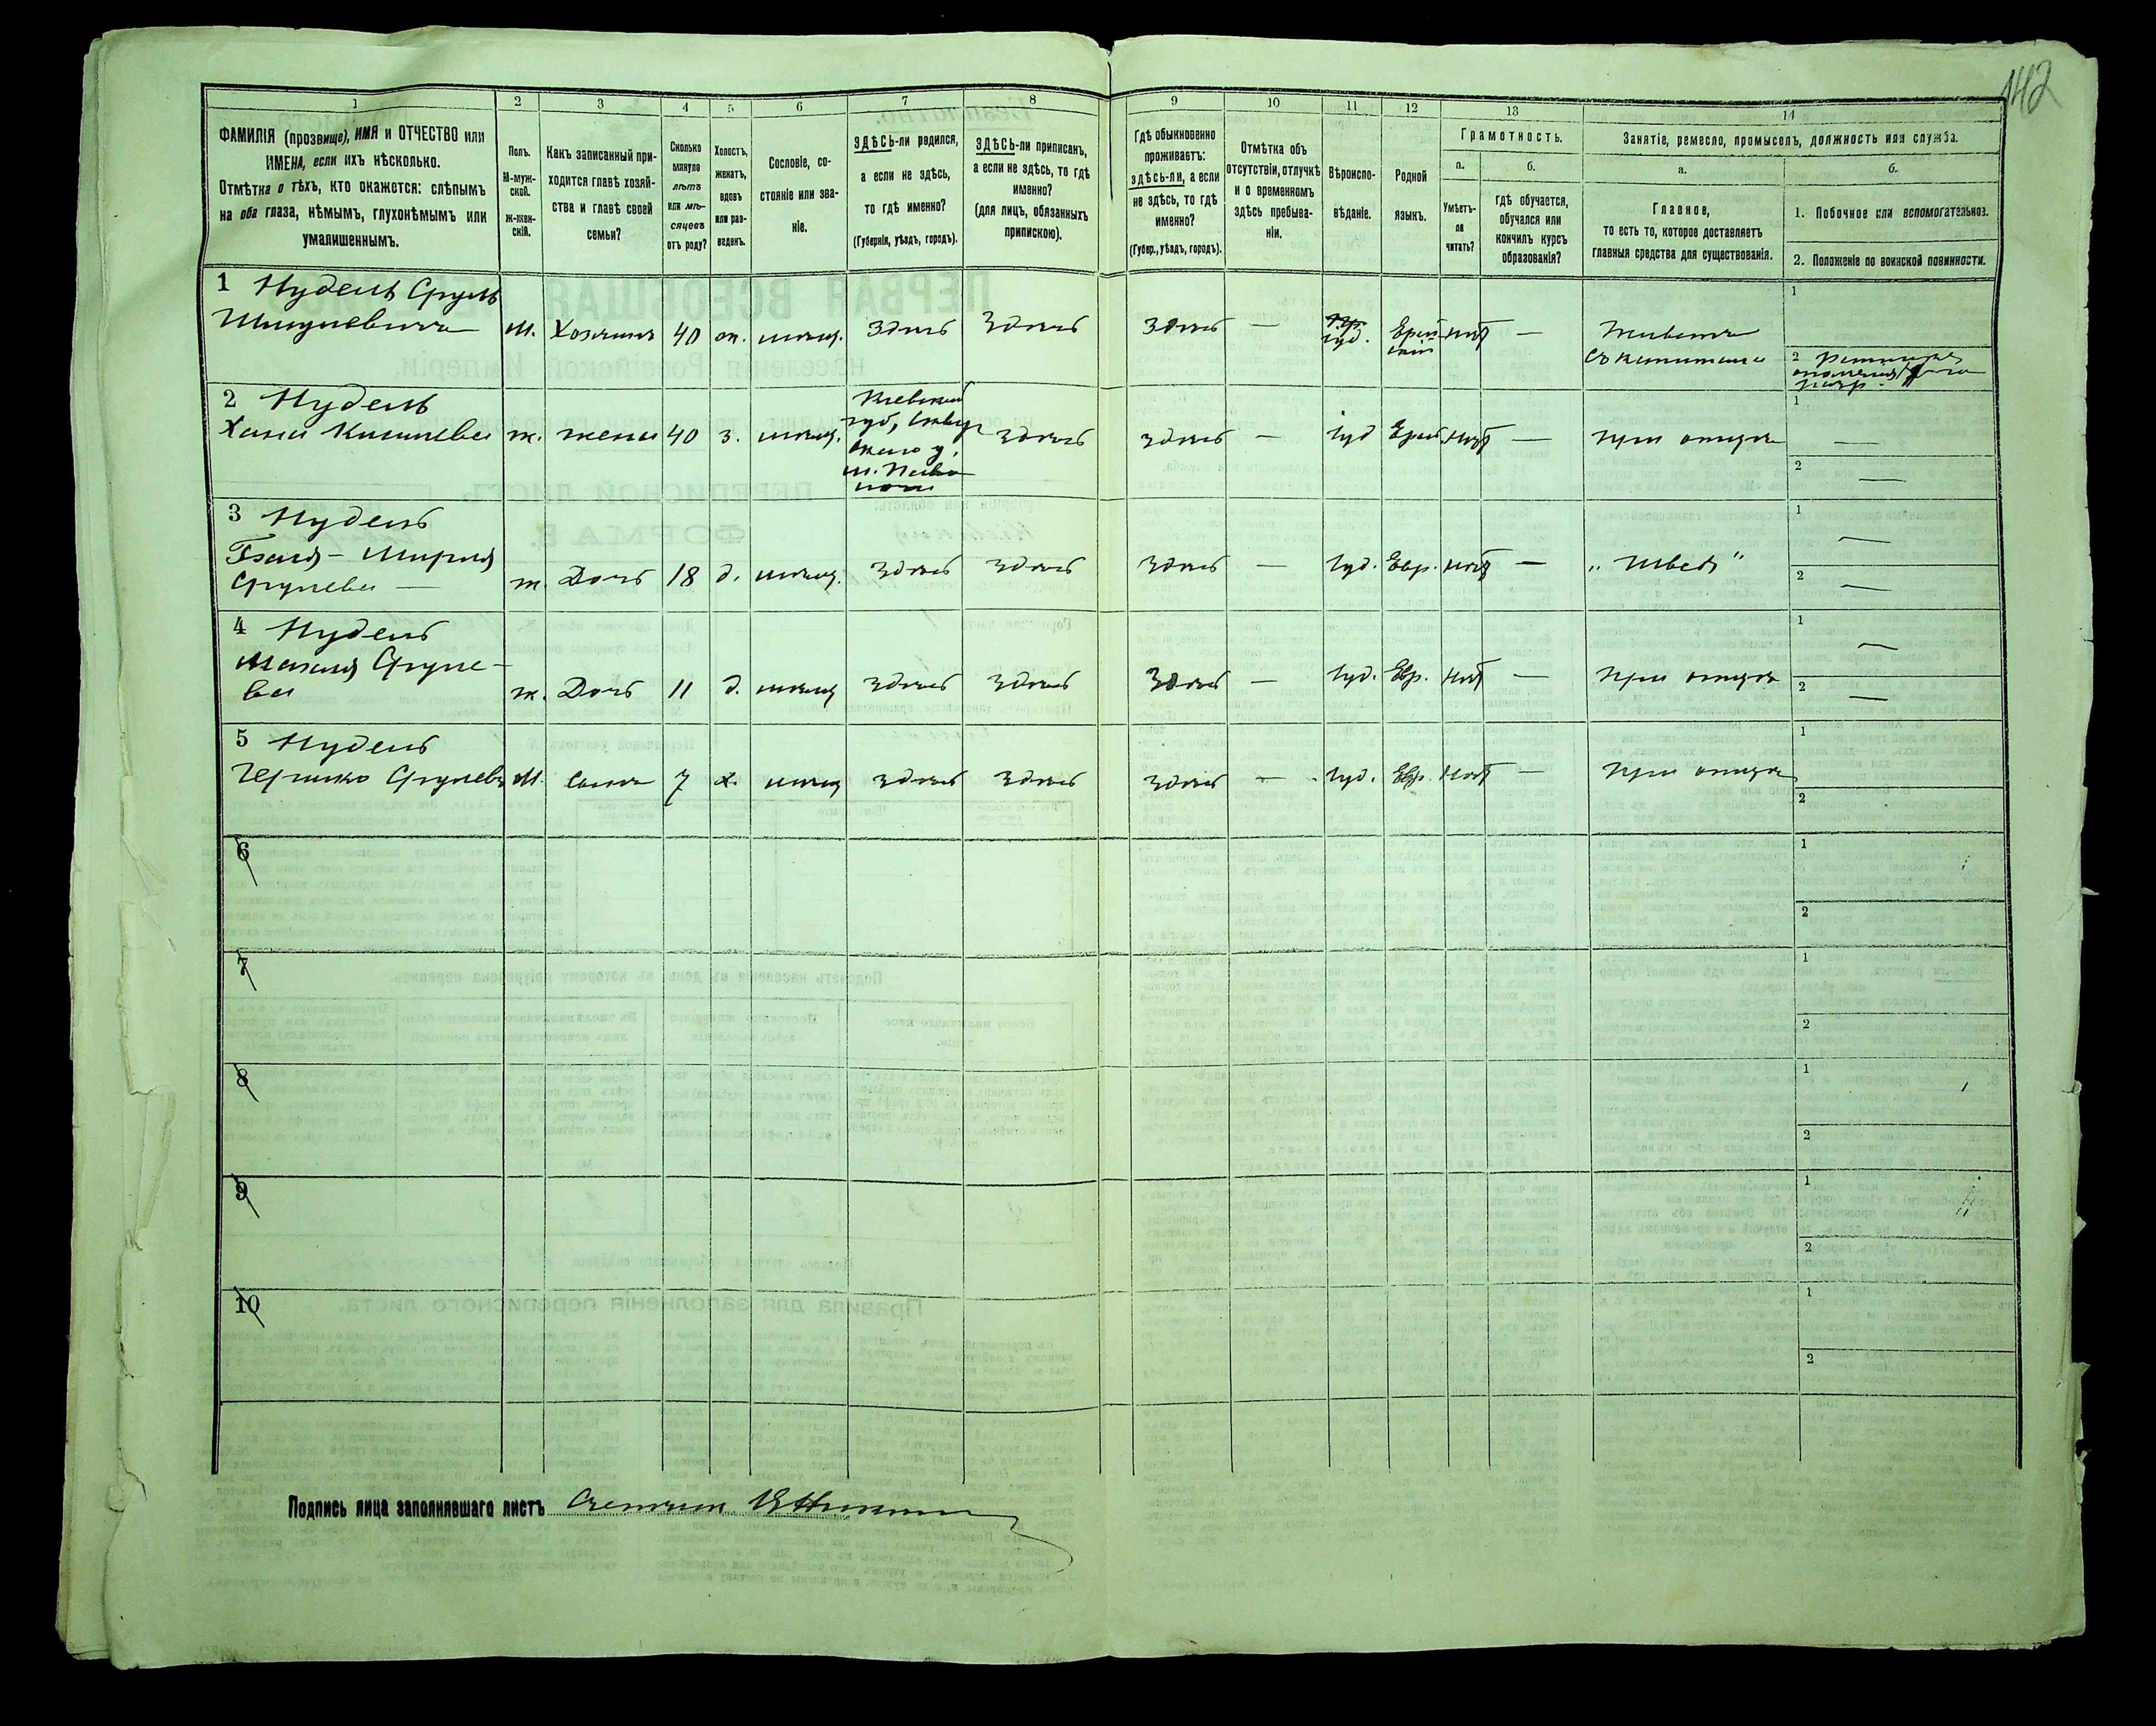 142
1 2 3 4 5 6 7 8 9 10 11 12 13 14
ФАМИЛІЯ (прозвище), ИМЯ и ОТЧЕСТВО или
ИМЕНА, если ихъ нѣсколько.
Отмѣтка о тѣхъ, кто окажется: слѣпымъ
на оба глаза, нѣмымъ, глухонѣмымъ или
умалишеннымъ.
Полъ.
М-муж-
ской.
Ж-жен-
скій.
Какъ записанный при-
ходится главѣ хозяй-
ства и главѣ своей
семьи?
Сколько
минуло
лѣтъ
или мѣ-
сяцевъ
отъ роду?
Холостъ,
женатъ,
вдовъ
или раз-
веденъ.
Сословіе, со-
стояніе или зва-
ніе.
ЗДѢСЬ-ли родился,
а если не здѣсь,
то гдѣ именно?
(Губернія, уѣздъ, городъ).
ЗДѢСЬ-ли приписанъ,
а если не здѣсь, то гдѣ
именно?
(для лицъ, обязанныхъ
припиской).
Гдѣ обыкновенно
проживаетъ:
здѣсь-ли, а если
не здѣсь, то гдѣ
именно?
(Губер., уѣздъ, городъ).
Отмѣтка объ
отсутствіи, отлучкѣ
и о временномъ
здѣсь пребыва-
ніи.
Вѣроиспо-
вѣданіе.
Родной
языкъ.
Грамотность.
а.
Умѣетъ-
ли
читать?
б.
гдѣ обучается,
обучался или
кончилъ курсъ
образованія?
Занятіе, ремесло, промыселъ, должность или служба.
а.
Главное,
то есть то, которое доставляетъ
главныя средства для существованія.
б.
1. Побочное или вспомогательное.
2. Положеніе по воинской повинности.
1 Нудель Сруль
Шмулевичъ М. Хозяинъ 40 ж. мѣщ. Здѣсь Здѣсь Здѣсь — Іуд. Еврей-скій нѣт — Живетъ
съ капитала
1
2 Ратникъ
2 Нудель
Хана ж. жена 40 з. мѣщ. Кіевской
губ., Сквир
скаго у.
здѣсь здѣсь — Іуд Еврей. нѣт — при отцѣ
1 —
2 —
3 Нудель
Срулева — ж. Дочь 18 д. мѣщ. здѣсь здѣсь здѣсь — Іуд. Евр. нѣт — „ Швея "
1 —
2 —
4 Нудель
Сруле-
ва ж. Дочь 11 д. мѣщ здѣсь здѣсь Здѣсь — Іуд. Евр. нѣт — при отцѣ
1 —
2 —
5 Нудель
Гершко Срулевъ М. сынъ 7 х. мѣщ здѣсь здѣсь здѣсь — Іуд. Евр. нѣт — при отцѣ
1
2
6
1
2
7
1
2
8
1
2
9
1
2
10
1
2
Подпись лица заполнявшаго листъ Счетчик